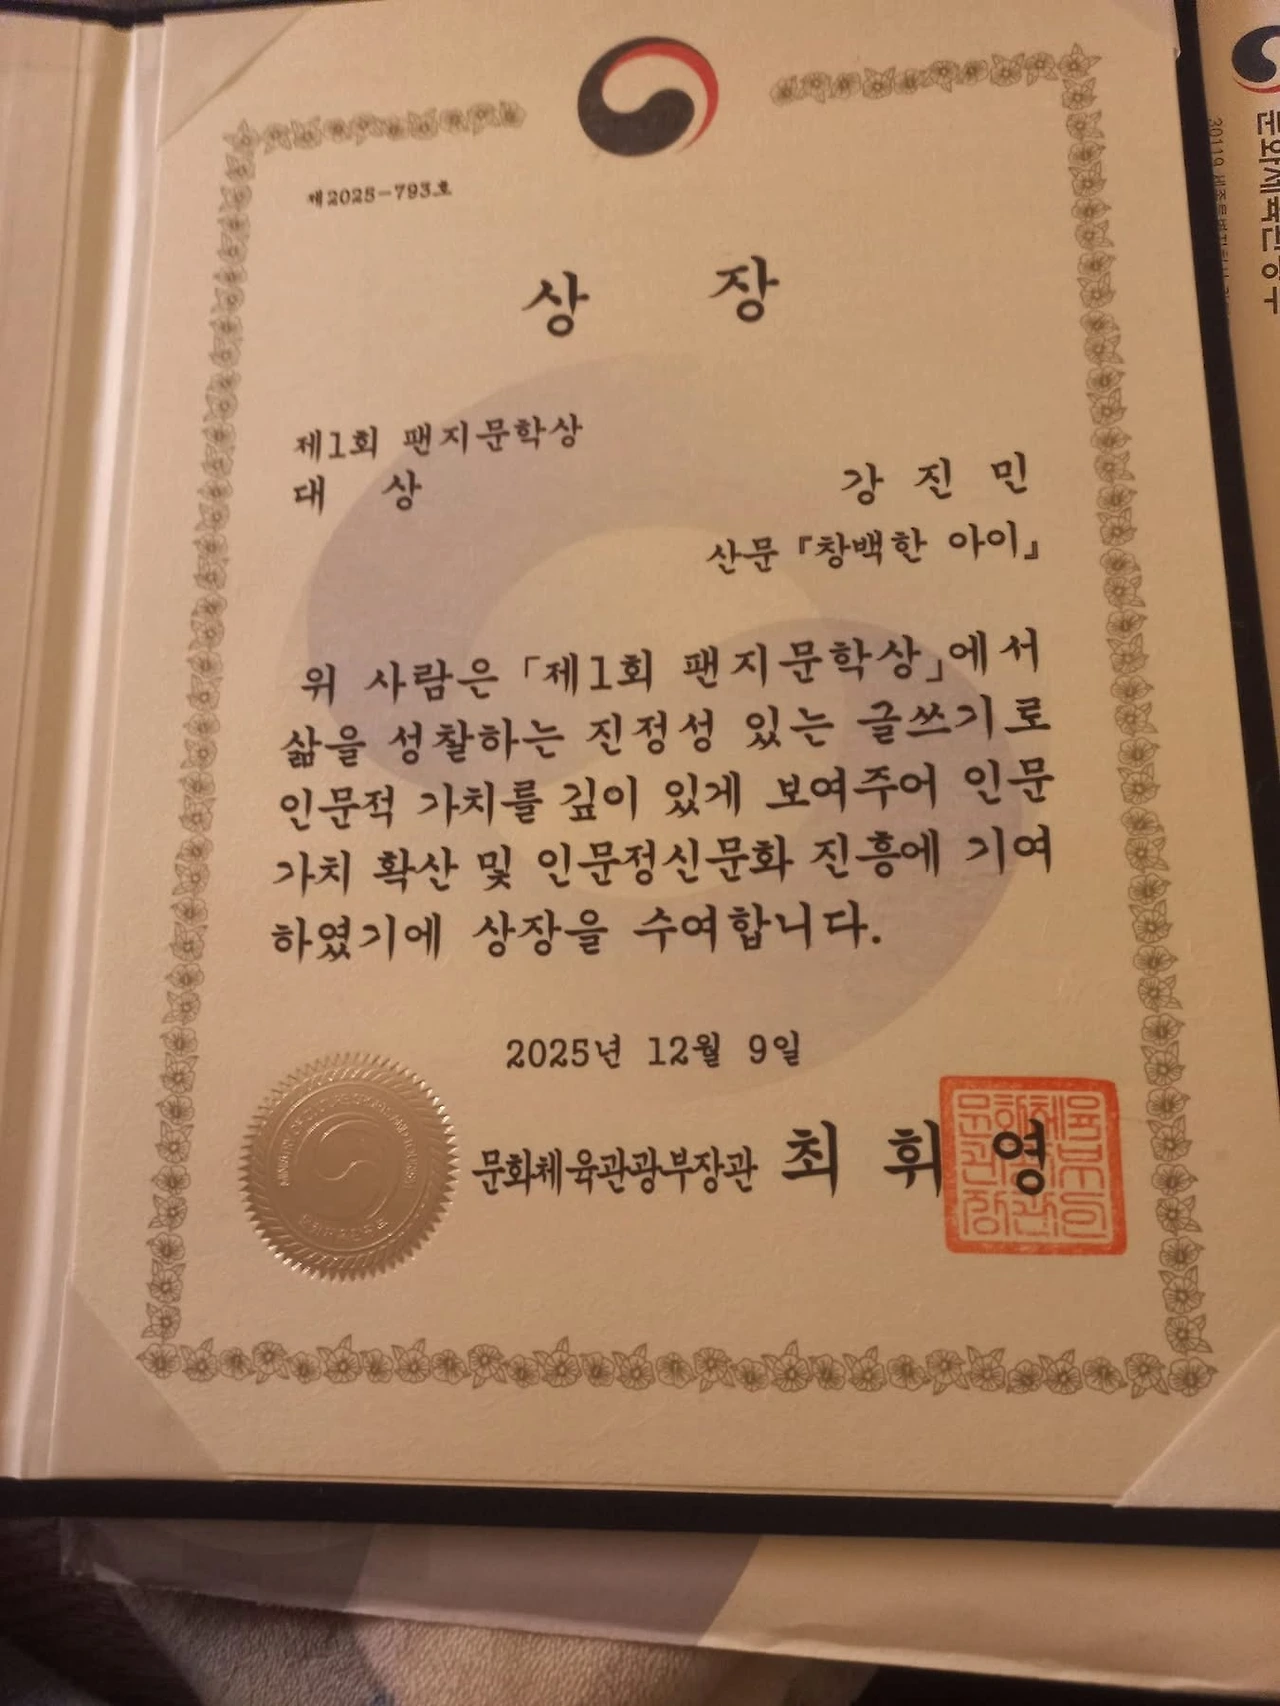 제2025-793호
상 장
제1회 팬지문학상
대 상
강 진 민
산문 『창백한 아이』
위 사람은 「제1회 팬지문학상」에서
삶을 성찰하는 진정성 있는 글쓰기로
인문적 가치를 깊이 있게 보여주어 인문
가치 확산 및 인문정신문화 진흥에 기여
하였기에 상장을 수여합니다.
2025년 12월 9일
문화체육관광부장관 최 휘 영
문화체육관광부장관의인
문화체육관광부